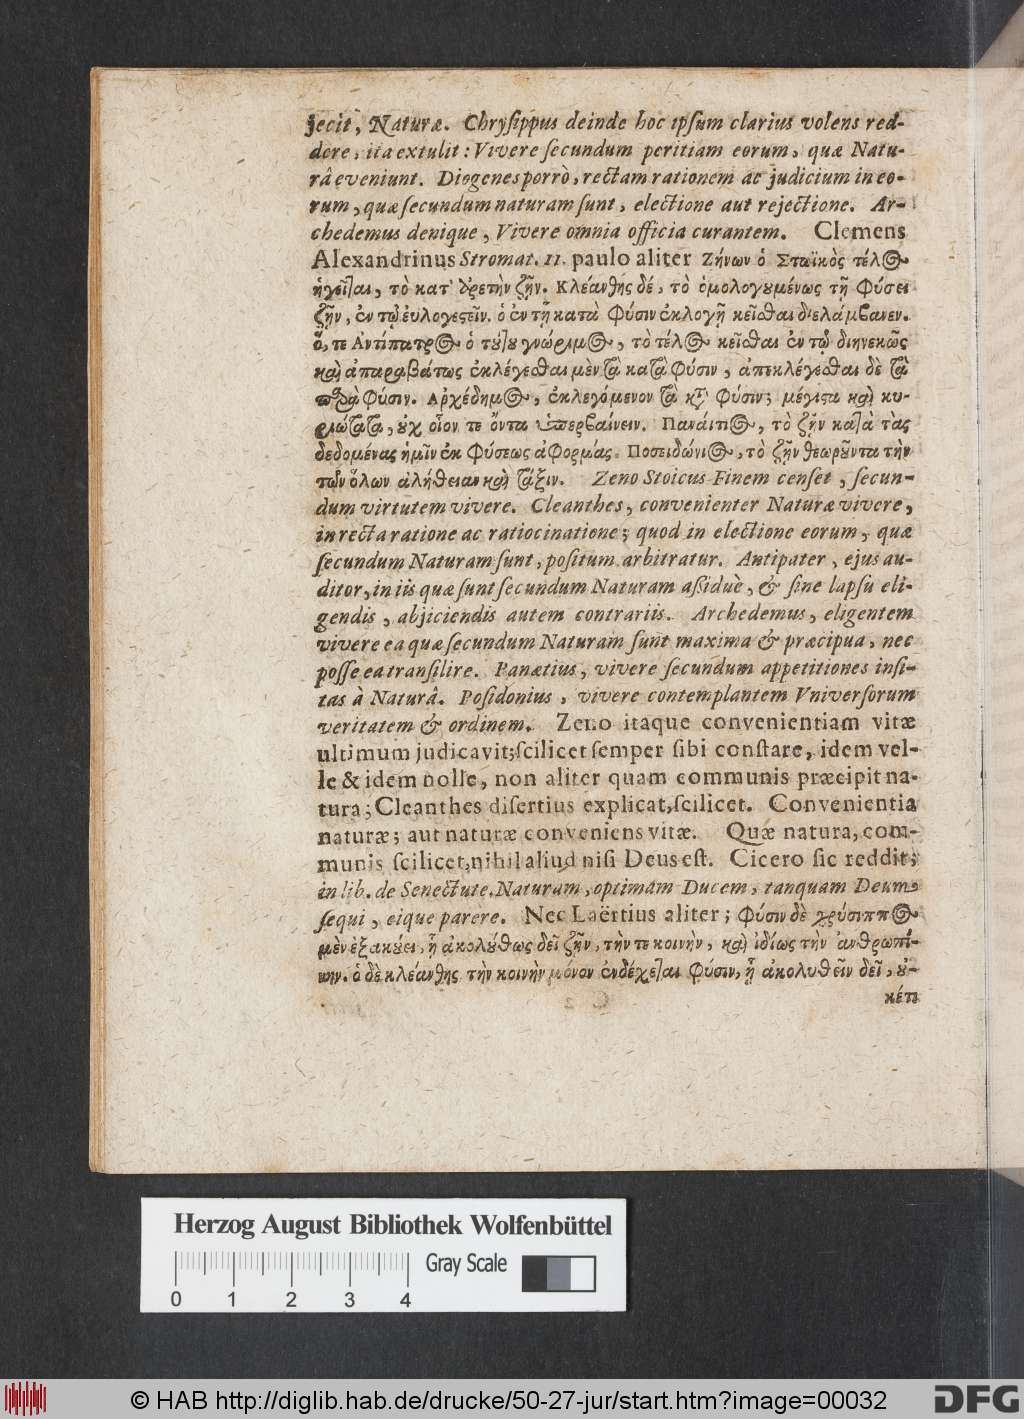 jecit, Naturæ. Chrysippus deinde hoc ipsum clarius volens red-
dere, ita extulit: Vivere secundum peritiam eorum, quæ Natu-
râ eveniunt. Diogenes porrò, rectam rationem ac judicium in eo-
rum, quæ secundum naturam sunt, electione aut rejectione. Ar-
chedemus denique, Vivere omnia officia curantem. Clemens
Alexandrinus Stromat. 11. paulo aliter Ζήνων ὁ Στωϊκὸς τέλος
ἡγεῖται, τὸ κατ' ἀρετὴν ζῇν. Κλεάνθης δέ, τὸ ὁμολογουμένως τῇ Φύσει
ζῇν, ἐν τῷ εὐλογεστεῖν. ὁ ἐν τῇ κατὰ Φύσιν ἐκλογῇ κεῖσθαι διελάμβανεν.
ὅ, τε Αντίπατρος ὁ τούτου γνώριμος, τὸ τέλος κεῖσθαι ἐν τῷ διηνεκῶς
καὶ ἀπαραβάτως ἐκλέγεσθαι μὲν τὰ κατὰ Φύσιν, ἀπεκλέγεσθαι δὲ τὰ
παρὰ Φύσιν. Αρχέδημος, ἐκλεγόμενον τὰ κατὰ Φύσιν; μέγιστα καὶ κυ-
ριώτατα, οὐχ οἷον τε ὄντα ὑπερβαίνειν. Παναίτιος, τὸ ζῇν κατὰ τὰς
δεδομένας ἡμῖν ἐκ Φύσεως ἀφορμάς. Ποσειδώνιος, τὸ ζῇν θεωροῦντα τὴν
τῶν ὅλων ἀλήθειαν καὶ τάξιν. Zeno Stoicus Finem censet, secun-
dum virtutem vivere. Cleanthes, convenienter Naturæ vivere,
in recta ratione ac ratiocinatione; quod in electione eorum, quæ
secundum Naturam sunt, positum arbitratur. Antipater, ejus au-
ditor, in iis quæ sunt secundum Naturam assiduè, & sine lapsu eli-
gendis, abjiciendis autem contrariis. Archedemus, eligentem
vivere ea quæ secundum Naturam sunt maxima & præcipua, nec
posse ea transilire. Panætius, vivere secundum appetitiones insi-
tas à Naturâ. Posidonius, vivere contemplantem Vniversorum
veritatem & ordinem. Zeno itaque convenientiam vitæ
ultimum judicavit; scilicet semper sibi constare, idem vel-
le & idem nolle, non aliter quam communis præcipit na-
tura; Cleanthes disertius explicat, scilicet. Convenientia
naturæ; aut naturæ conveniens vitæ. Quæ natura, com-
munis scilicet, nihil aliud nisi Deus est. Cicero sic reddit;
in lib. de Senectute. Naturam, optimam Ducem, tanquam Deum
sequi, eique parere. Nec Laërtius aliter; Φύσιν δὲ χρύσιππος
μὲν ἐξακούει, ᾗ ἀκολούθως δεῖ ζῇν, τὴν τε κοινὴν, καὶ ἰδίως τὴν ἀνθρωπί-
νην. ὁ δὲ κλεάνθης τὴν κοινὴν μόνον ἐνδέχεται Φύσιν, ᾗ ἀκολυθεῖν δεῖ, οὐ-
κέτι
Herzog August Bibliothek Wolfenbüttel
Gray Scale
0 1 2 3 4
© HAB http://diglib.hab.de/drucke/50-27-jur/start.htm?image=00032
DFG